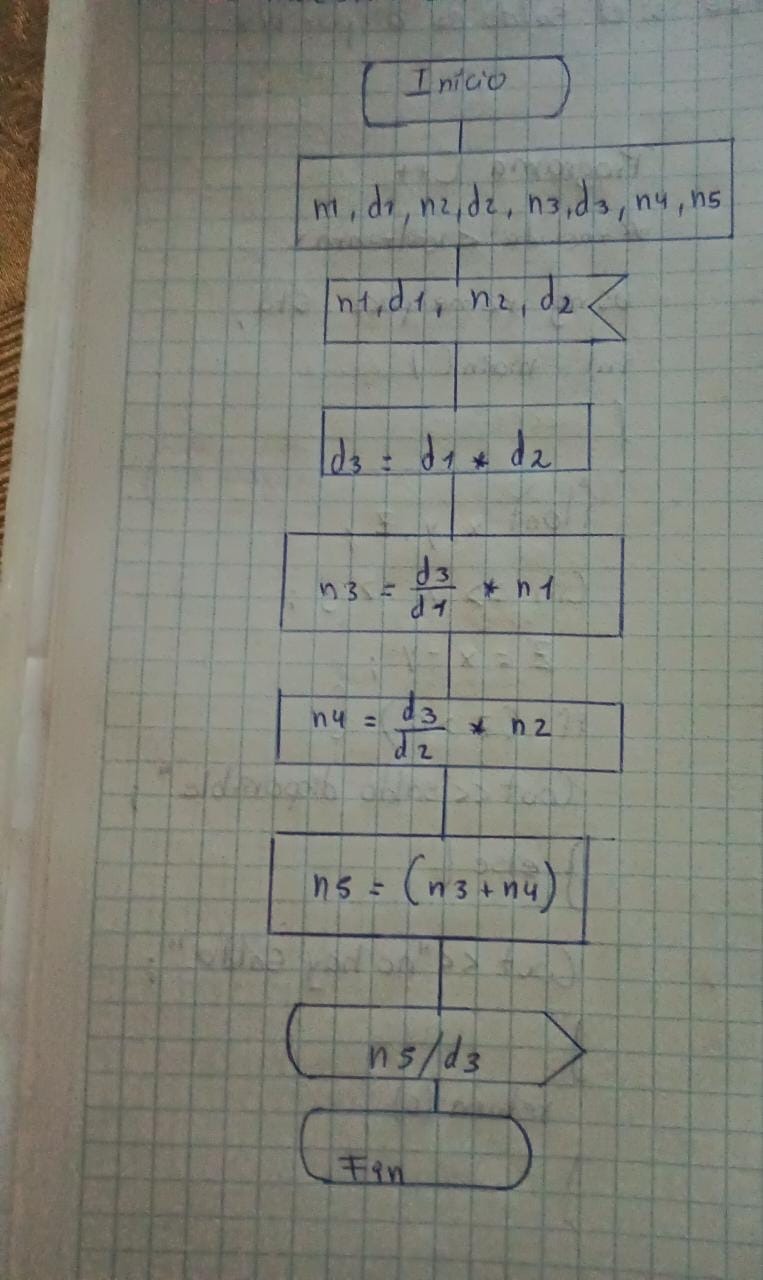 Inicio
n1, d1, n2, d2, n3, d3, n4, n5
n1, d1, n2, d2
d3 = d1 * d2
n3 = d3/d1 * n1
n4 = d3/d2 * n2
n5 = (n3 + n4)
n5/d3
Fin